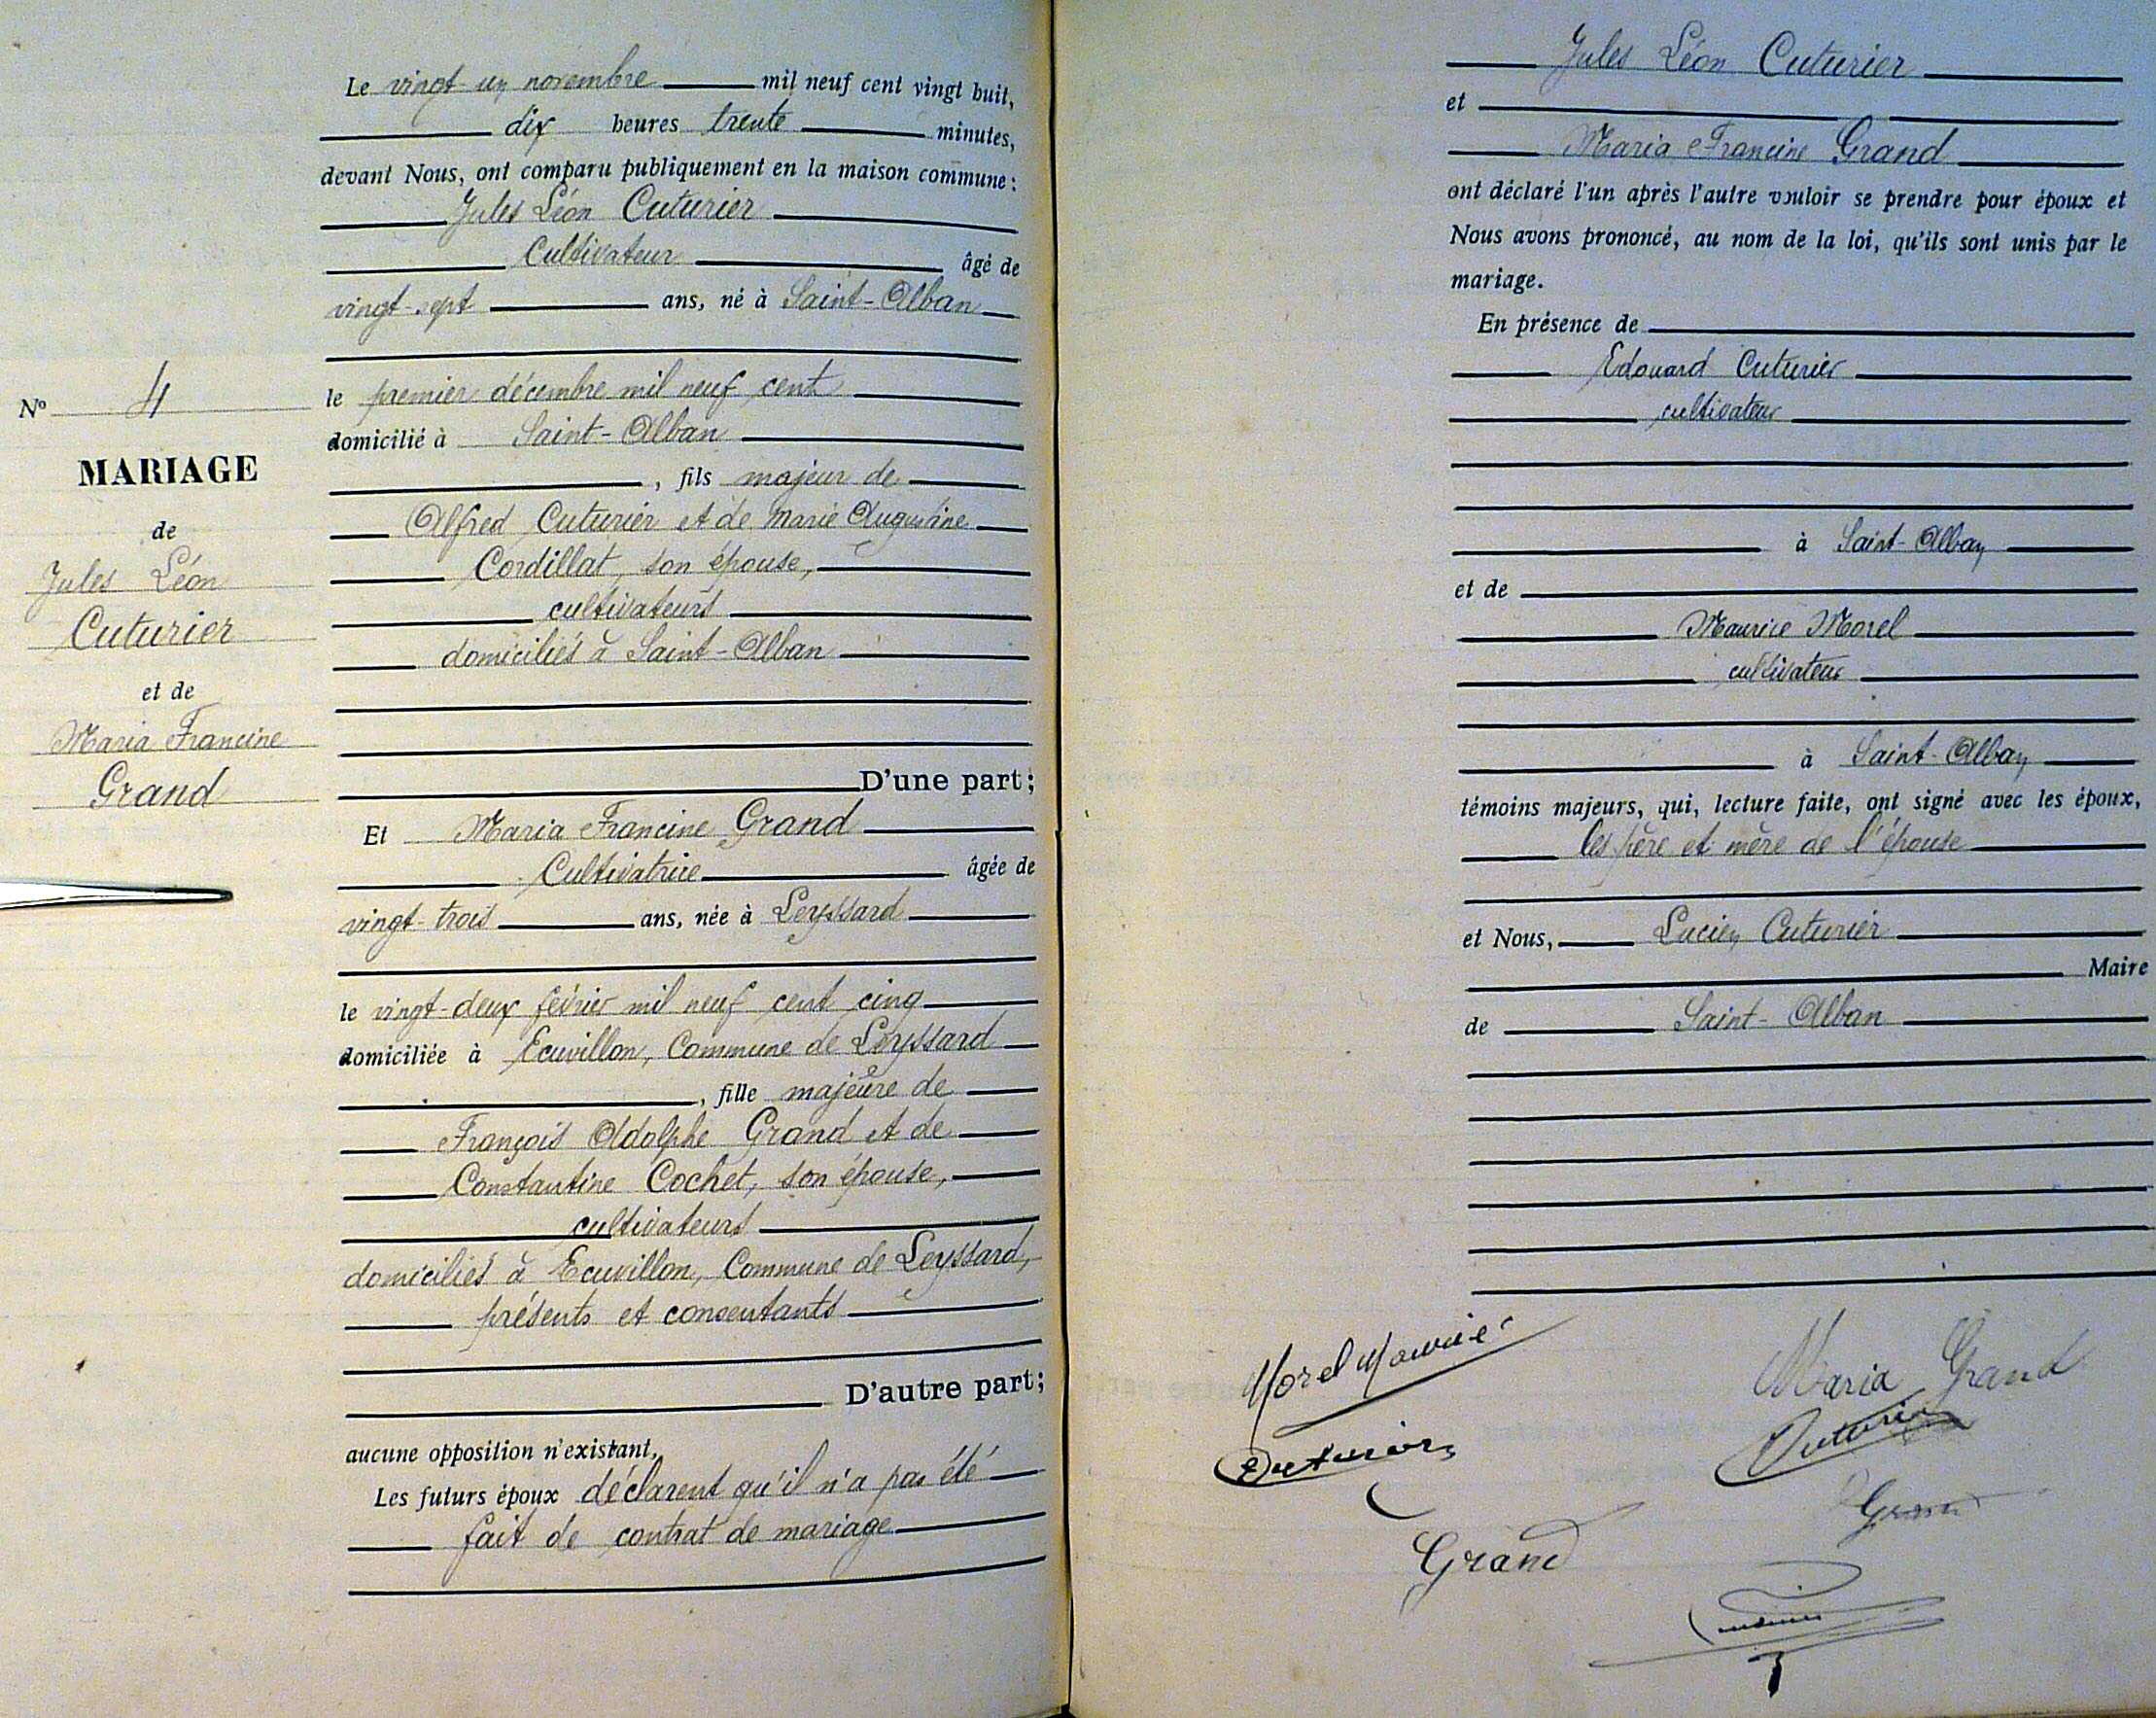 Le vingt-un novembre mil neuf cent vingt huit,
dix heures trente minutes,
devant Nous, ont comparu publiquement en la maison commune :
Jules Léon Cuturier
Cultivateur âgé de
vingt-sept ans, né à Saint-Alban
le premier décembre mil neuf cent
domicilié à Saint-Alban
, fils majeur de
Alfred Cuturier et de Marie Augustine
Cordillat, son épouse,
cultivateurs
domiciliés à Saint-Alban
D'une part;
Et Maria Francine Grand
Cultivatrice âgée de
vingt-trois ans, née à Leyssard
le vingt-deux février mil neuf cent cinq
domiciliée à Ecuvillon, Commune de Leyssard
, fille majeure de
François Adolphe Grand et de
Constantine Cochet, son épouse,
cultivateurs
domiciliés à Ecuvillon, Commune de Leyssard,
présents et consentants
D'autre part;
aucune opposition n'existant,
Les futurs époux déclarent qu'il n'a pas été
fait de contrat de mariage
No 4
MARIAGE
de
Jules Léon
Cuturier
et de
Maria Francine
Grand
Jules Léon Cuturier
et
Maria Francine Grand
ont déclaré l'un après l'autre vouloir se prendre pour époux et
Nous avons prononcé, au nom de la loi, qu'ils sont unis par le
mariage.
En présence de
Edouard Cuturier
cultivateur
à Saint-Alban
et de
Maurice Morel
cultivateur
à Saint-Alban
témoins majeurs, qui, lecture faite, ont signé avec les époux,
les père et mère de l'épouse
et Nous, Lucien Cuturier
Maire
de Saint-Alban
Morel Maurice
Maria Grand
Cuturier
Cuturier
Grand
Grand